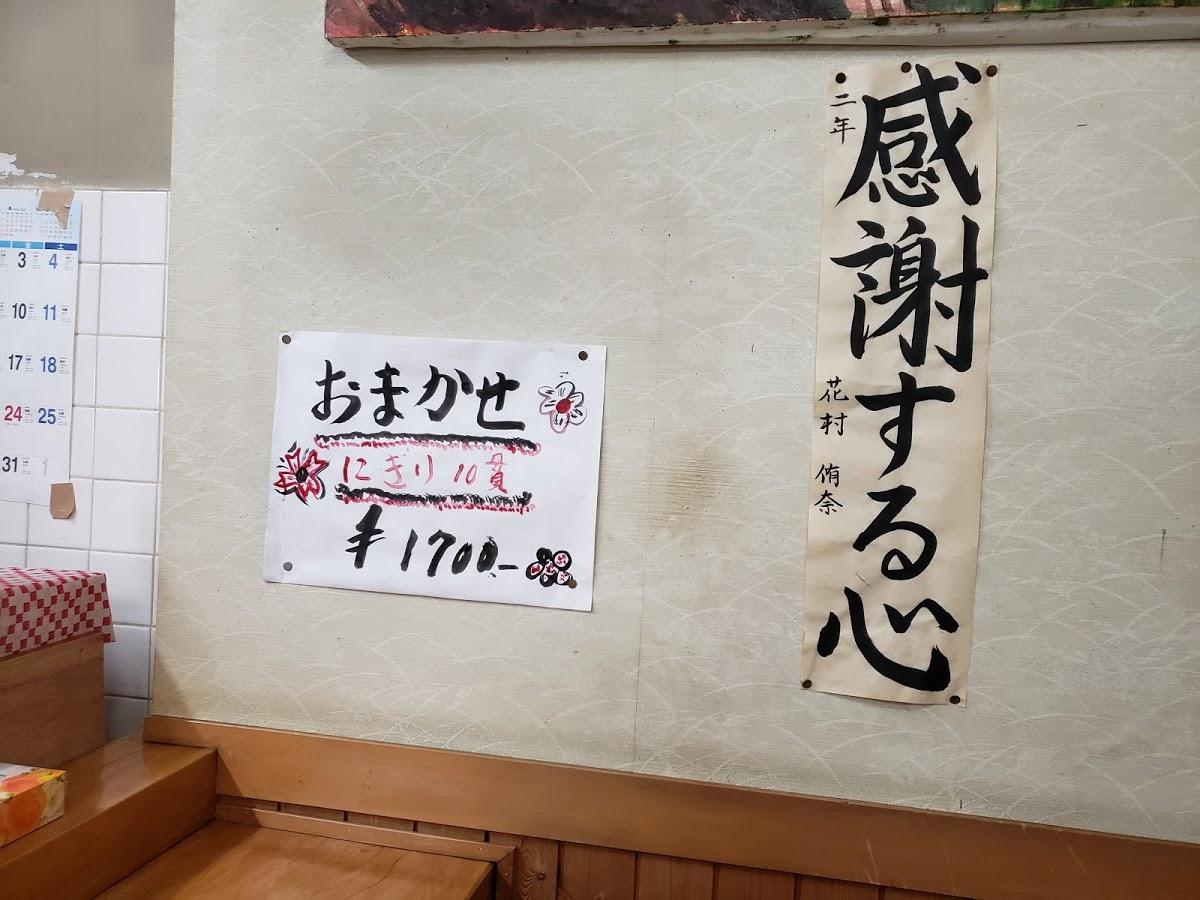 感謝する心
二年
花村 侑奈
おまかせ
にぎり 10貫
¥1700-
金 土
3 4
10 11
17 18
24 25
31 1